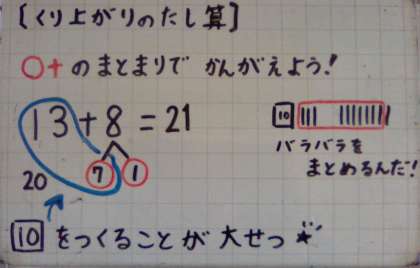 [くり上がりのたし算]
○+のまとまりで かんがえよう!
13+8=21
7 1
20
10
バラバラを
まとめるんだ!
10をつくることが大せつ